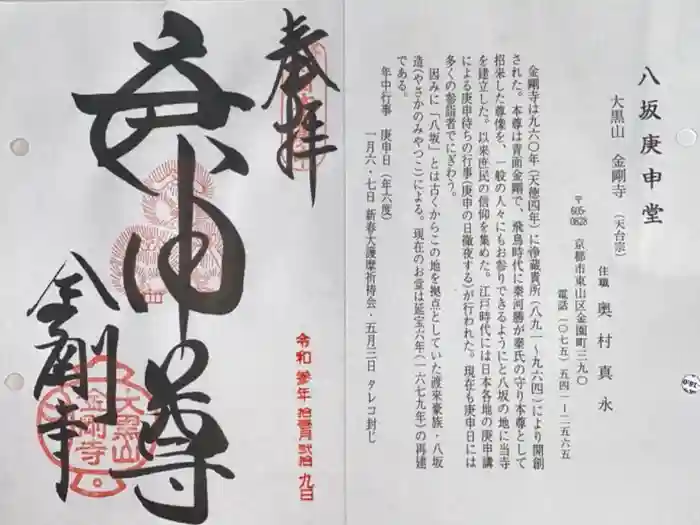 八坂庚申堂
大黒山 金剛寺 (天台宗)
住職 奥村真永
〒605-0828 京都市東山区金園町三九〇
電話(〇七五)五四一ー二五六五
金剛寺は九六〇年(天徳四年)に浄蔵貴所(八九一〜九六四)により開創
された。本尊は青面金剛で、飛鳥時代に秦河勝が秦氏の守り本尊として
招来した尊像を、一般の人々にもお参りできるようにと八坂の地に当寺
を建立した。以来庶民の信仰を集めた。江戸時代には日本各地の庚申講
による庚申待ちの行事(庚申の日徹夜する)が行われた。現在も庚申日には
多くの参詣者でにぎわう。
因みに「八坂」とは古くからこの地を拠点としていた渡来豪族・八坂
造(やさかのみやつこ)による。現在のお堂は延宝六年(一六七九年)の再建
である。
年中行事 庚申日(年六度)
一月六・七日 新春大護摩祈祷会・五月三日 タレコ封じ
奉拝
庚申尊
金剛寺
大黒山
金剛寺
令和 参年 拾壹月 弐拾 九日